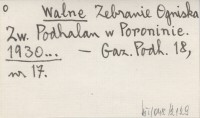 o Walne Zebranie Ogniska
Zw. Podhalan w Poroninie.
1930... — Gaz. Podh. 18,
nr 17.